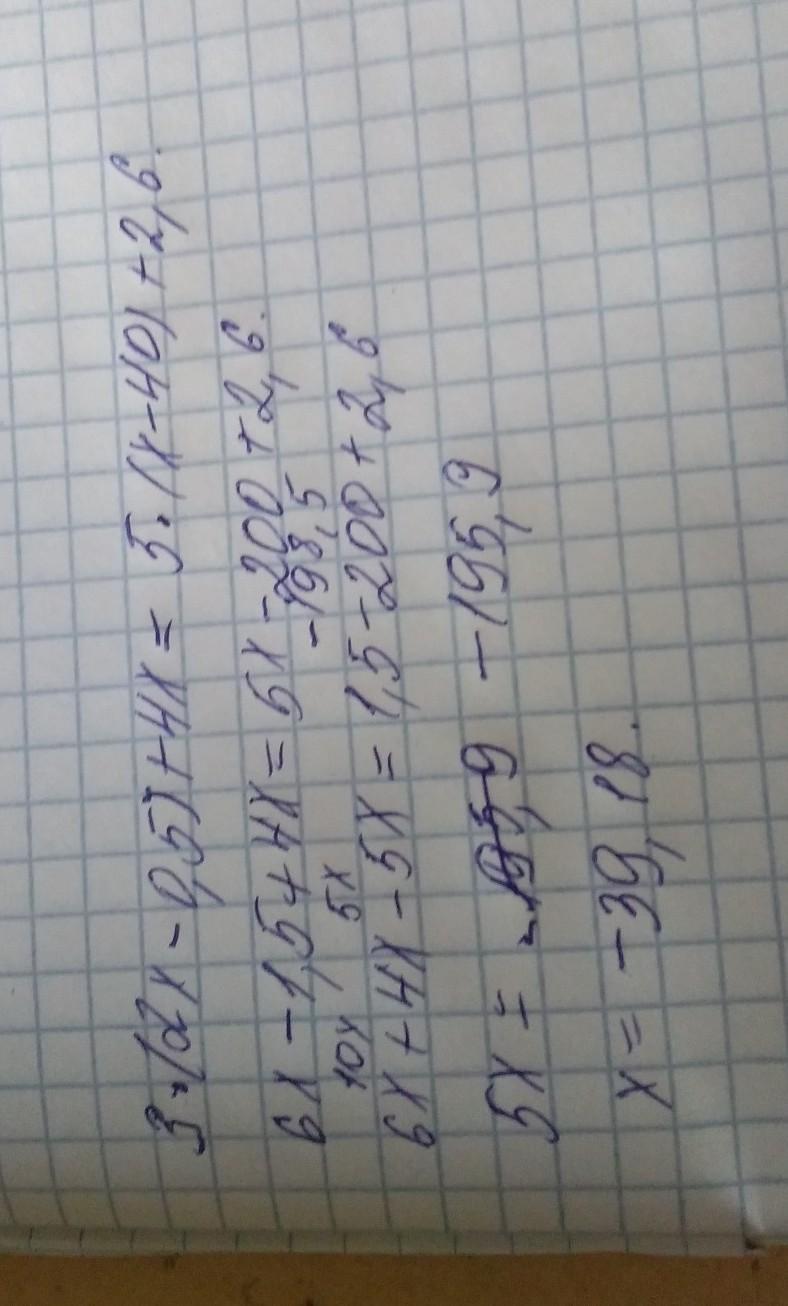 3·(2x-0,5)+4x = 5·(x-40)+2,6.
6x-1,5+4x=5x-200+2,6.
10x 5x -198,5
6x+4x-5x=1,5-200+2,6
5x = -195,9 -195,9
x = -39,18.